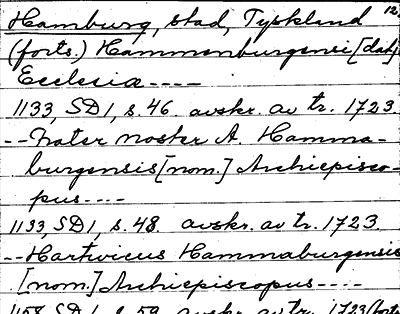 Hamburg, stad, Tyskland 12.
(forts.) Hammenburgensi [dat]
Ecclesiæ ----
1133, SD 1, s. 46. avskr. av tr. 1723.
-- Frater noster A. Hamma-
burgensis [nom.] Archiepisco-
pus ----
1133, SD 1, s. 48. avskr. av tr. 1723.
-- Hartwicus Hammaburgensis
[nom.] Archiepiscopus ----
1158 SD 1, s. 59. avskr. av tr. 1723 (forts